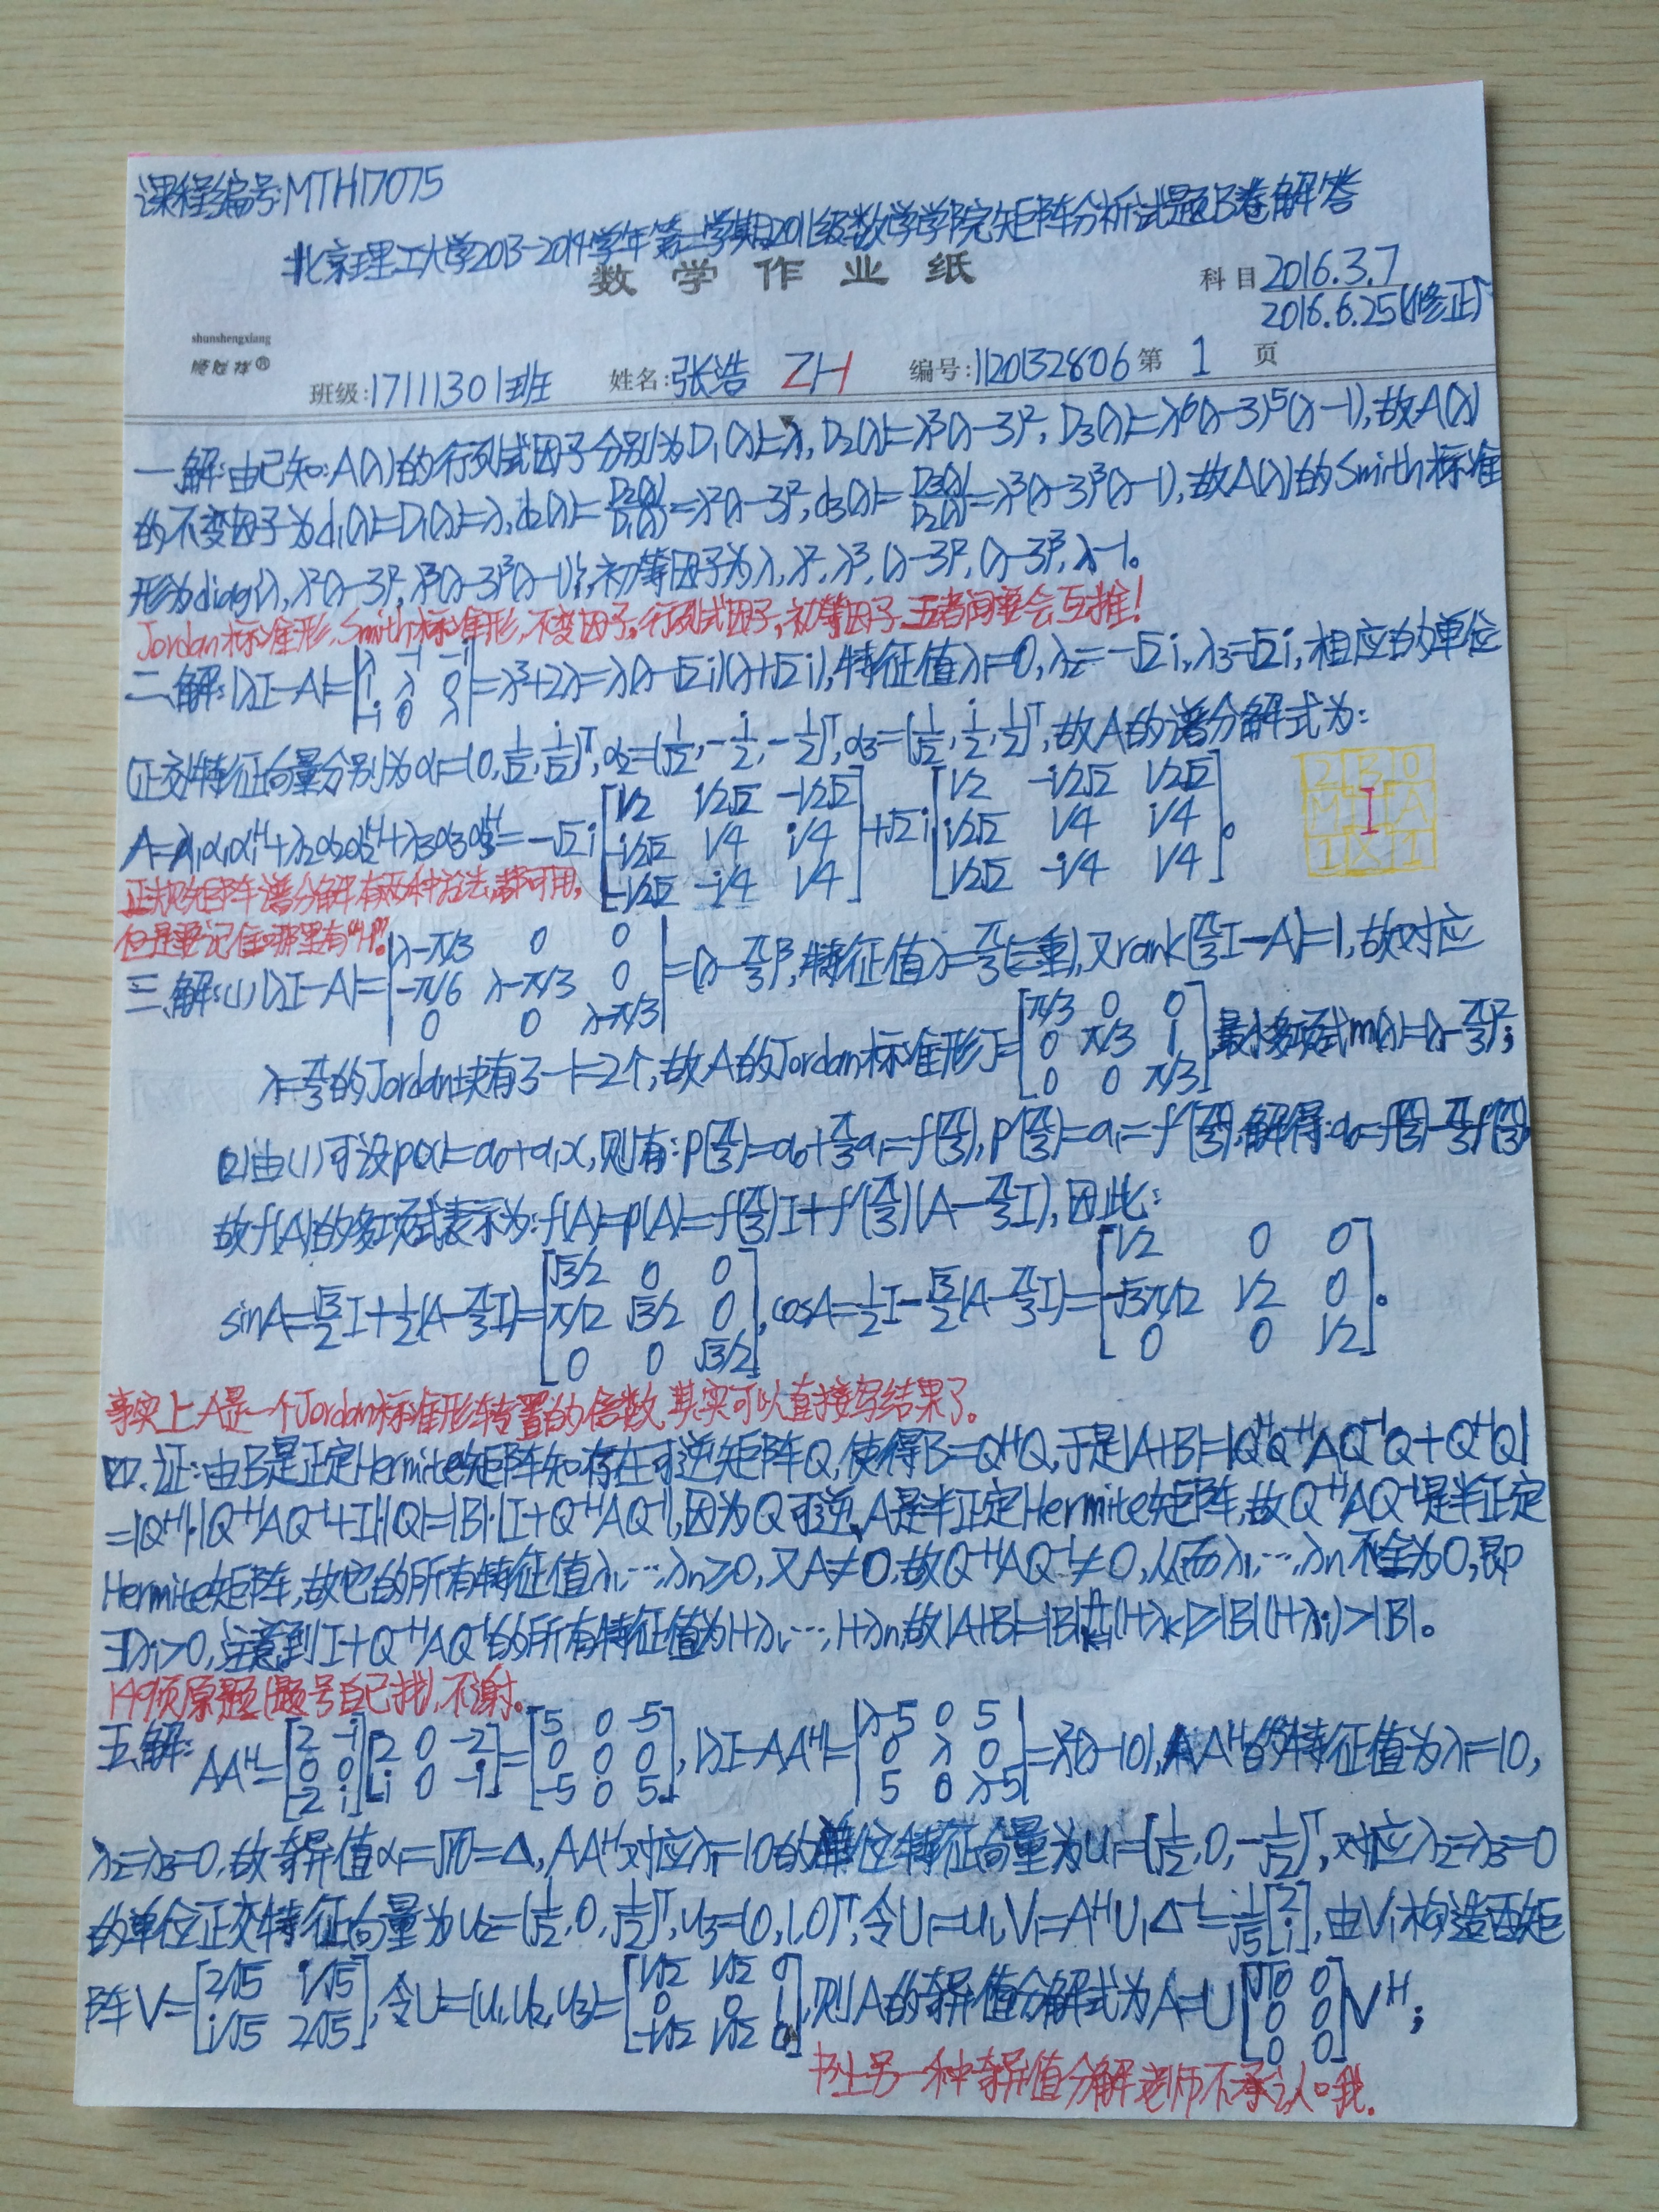 课程编号:MTH17075
北京理工大学2013-2014学年第二学期2011级数学学院矩阵分析试题B卷解答
数学作业纸 科目 2016.3.7
2016.6.25(修正)
shunshengxiang
顺胜祥®
班级:17111301班 姓名:张浩 ZH 编号:1120132806 第 1 页
一.解:由已知:A(λ)的行列式因子分别为D₁(λ)=λ, D₂(λ)=λ³(λ-3)², D₃(λ)=λ⁶(λ-3)⁵(λ-1),故A(λ)
的不变因子为d₁(λ)=D₁(λ)=λ, d₂(λ)=D₂(λ)/D₁(λ)=λ²(λ-3)², d₃(λ)=D₃(λ)/D₂(λ)=λ³(λ-3)³(λ-1),故A(λ)的Smith标准
形为diag{λ, λ²(λ-3)², λ³(λ-3)³(λ-1)},初等因子为λ, λ², λ³, (λ-3)², (λ-3)³, λ-1。
Jordan标准形,Smith标准形,不变因子,行列式因子,初等因子,五者间要会互推!
二.解:|λI-A|=|λ -1 -i; 1 λ 0; -i 0 λ|=λ³+2λ=λ(λ-√2i)(λ+√2i),特征值λ₁=0,λ₂=-√2i,λ₃=√2i,相应的单位
(正交)特征向量分别为α₁=(0,1/√2,i/√2)ᵀ,α₂=(1/√2,-i/2,-1/2)ᵀ,α₃=(1/√2,i/2,1/2)ᵀ,故A的谱分解式为:
A=λ₁α₁α₁ᴴ+λ₂α₂α₂ᴴ+λ₃α₃α₃ᴴ=-√2i[1/2 i/2√2 -1/2√2; -i/2√2 1/4 i/4; -1/2√2 -i/4 1/4]+√2i[1/2 -i/2√2 1/2√2; i/2√2 1/4 i/4; 1/2√2 -i/4 1/4]。
2 3 0
M I A
1 X 1
正规矩阵谱分解有两种说法,都可用,
但是要记住哪里有"H"。
三.解:(1)|λI-A|=|λ-π/3 0 0; -π/6 λ-π/3 0; 0 0 λ-π/3|=(λ-π/3)³,特征值λ=π/3(三重),又rank(π/3I-A)=1,故对应
λ=π/3的Jordan块有3-1=2个,故A的Jordan标准形J=[π/3 0 0; 0 π/3 1; 0 0 π/3],最小多项式m(λ)=(λ-π/3)²;
(2)由(1)可设p(x)=a₀+a₁x,则有:p(π/3)=a₀+π/3a₁=f(π/3),p'(π/3)=a₁=f'(π/3),解得:a₀=f(π/3)-π/3f'(π/3)
故f(A)的多项式表示为:f(A)=p(A)=f(π/3)I+f'(π/3)(A-π/3I),因此:
sinA=√3/2I+1/2(A-π/3I)=[√3/2 0 0; π/12 √3/2 0; 0 0 √3/2],cosA=1/2I-√3/2(A-π/3I)=[1/2 0 0; -√3π/12 1/2 0; 0 0 1/2]。
事实上A是一个Jordan标准形转置的倍数,其实可以直接写结果了。
四.证:由B是正定Hermite矩阵知,存在可逆矩阵Q,使得B=QᴴQ,于是|A+B|=|QᴴQ⁻ᴴAQ⁻¹Q+QᴴQ|
=|Qᴴ|·|Q⁻ᴴAQ⁻¹+I||Q|=|B|·|I+Q⁻ᴴAQ⁻¹|,因为Q可逆,A是半正定Hermite矩阵,故Q⁻ᴴAQ⁻¹是半正定
Hermite矩阵,故它的所有特征值λ₁,…,λn≥0,又A≠0,故Q⁻ᴴAQ⁻¹≠0,从而λ₁,…,λn不全为0,即
∃λi>0,注意到I+Q⁻ᴴAQ⁻¹的所有特征值为1+λ₁,…,1+λn,故|A+B|=|B|∏(1+λk)≥|B|(1+λi)>|B|。
149页原题(题号自己找),不谢。
五.解:AAᴴ=[2 -i; 0 0; -2 i][2 0 -2; i 0 -i]=[5 0 -5; 0 0 0; -5 0 5],|λI-AAᴴ|=|λ-5 0 5; 0 λ 0; 5 0 λ-5|=λ²(λ-10),AAᴴ的特征值为λ₁=10,
λ₂=λ₃=0,故奇异值α₁=√10=Δ,AAᴴ对应λ₁=10的单位特征向量为u₁=(1/√2,0,-1/√2)ᵀ,对应λ₂=λ₃=0
的单位正交特征向量为u₂=(1/√2,0,1/√2)ᵀ,u₃=(0,1,0)ᵀ,令U₁=u₁,V₁=AᴴU₁Δ⁻¹=1/√5[2; i],由V₁构造酉矩
阵V=[2/√5 i/√5; i/√5 2/√5],令U=(u₁,u₂,u₃)=[1/√2 1/√2 0; 0 0 1; -1/√2 1/√2 0],则A的奇异值分解式为A=U[√10 0; 0 0; 0 0]Vᴴ;
书上另一种奇异值分解老师不承认哦。